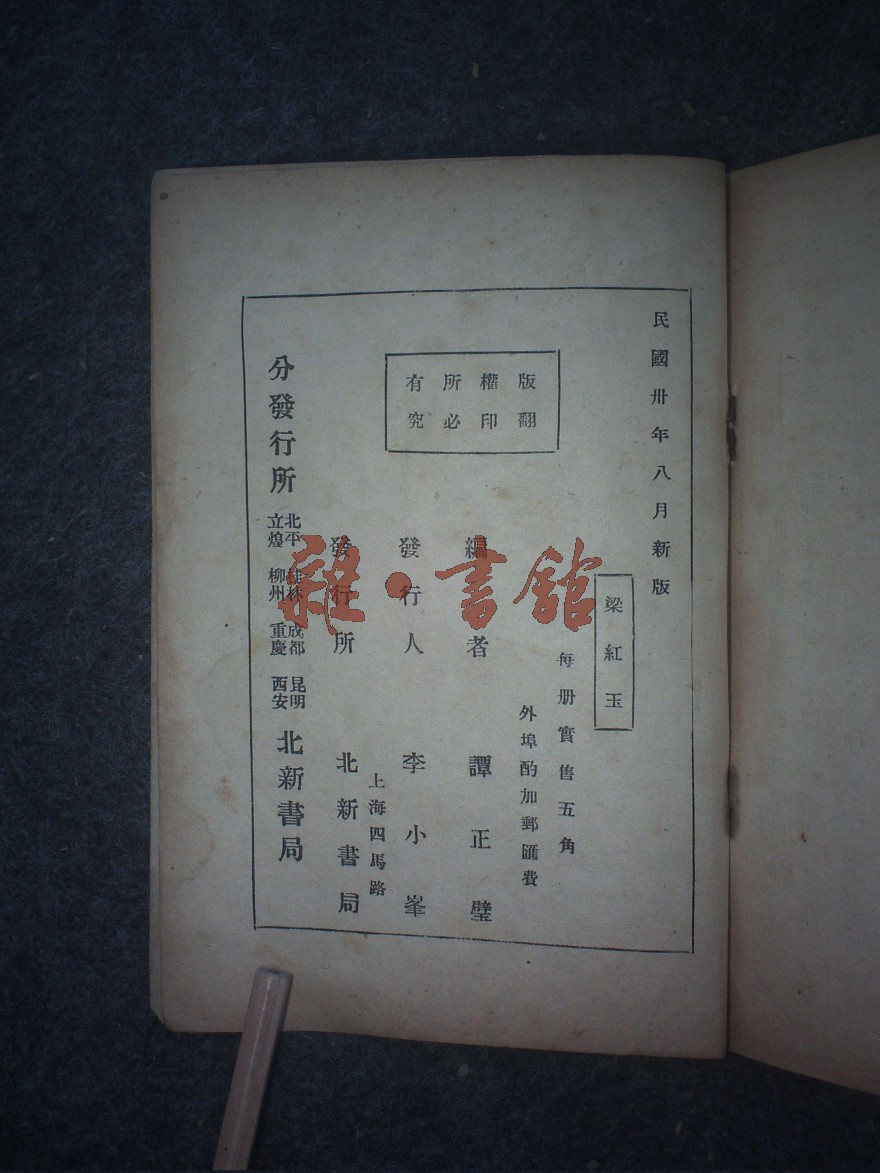 民國卅年八月新版
梁紅玉
每册實售五角
外埠酌加郵匯費
版權所有
翻印必究
編者 譚正璧
發行人 李小峯
上海四馬路
發行所 北新書局
分發行所 北平 桂林 成都 昆明 立煌 柳州 重慶 西安 北新書局
雜·書館